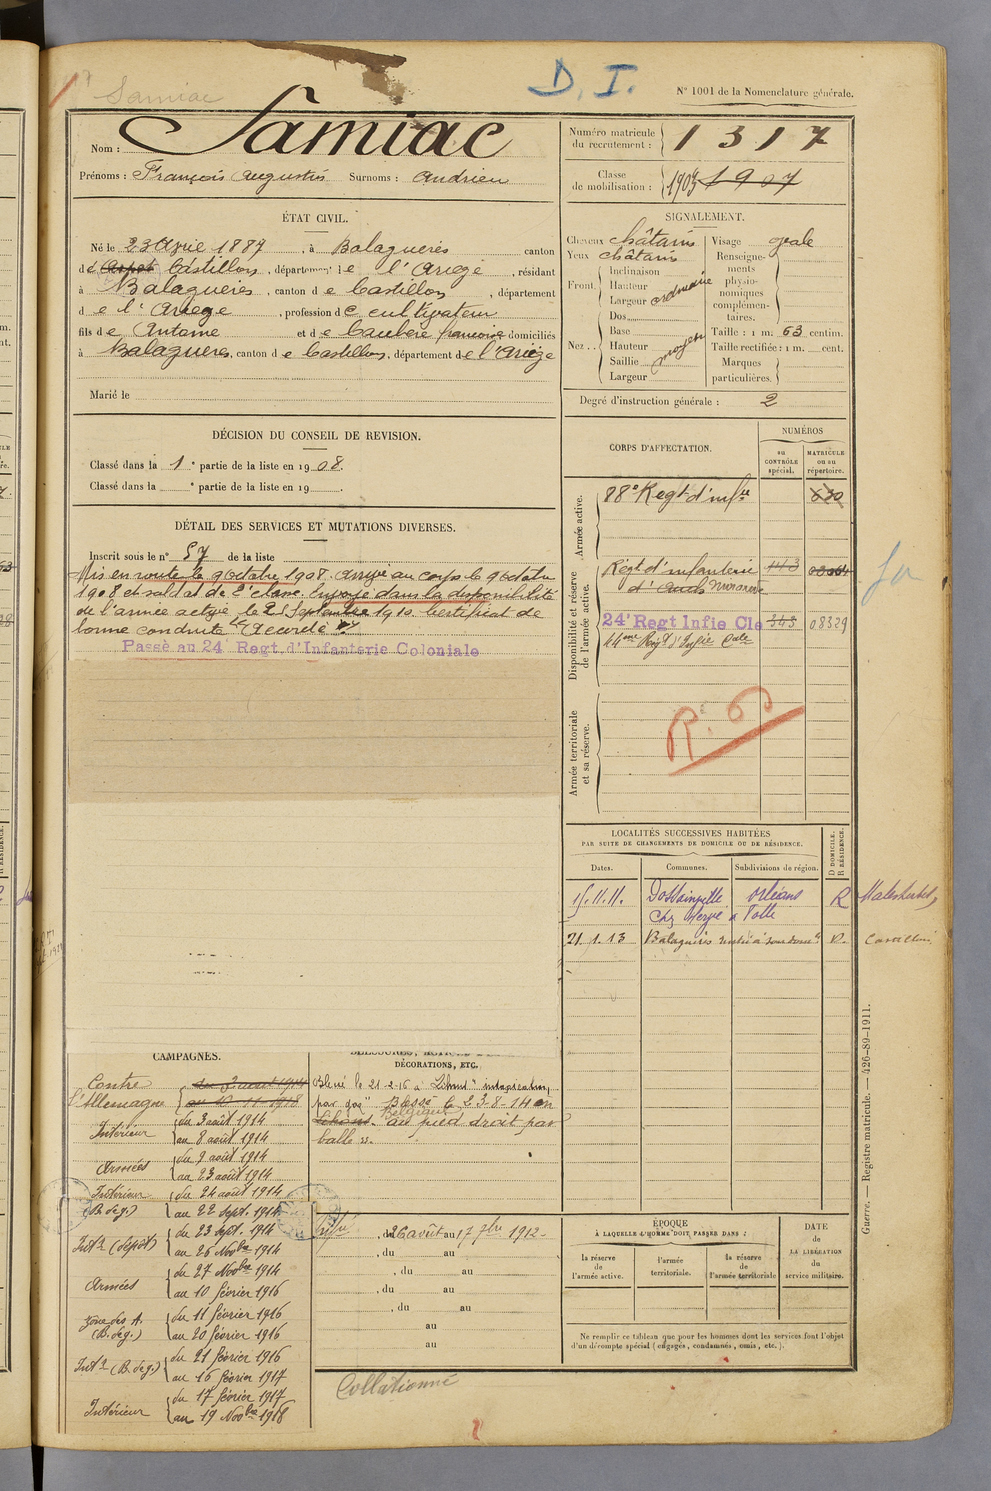 Samiac
D. I.
N° 1001 de la Nomenclature générale.
Nom : Samiac
Prénoms : François Augustin Surnoms : Andrieu
Numéro matricule du recrutement : 1 3 1 7
Classe de mobilisation : 1903 1907
ÉTAT CIVIL.
Né le 23 Avril 1887, à Balaguères canton
d'Aspet Castillon, département de l'Ariège, résidant
à Balaguères, canton de Castillon, département
de l'Ariège, profession de cultivateur
fils de Antoine et de Caubère françoise domiciliés
à Balaguères, canton de Castillon, département de l'Ariège
Marié le
SIGNALEMENT.
Cheveux châtains
Yeux châtains
Front. Inclinaison
Hauteur
Largeur ordinaire
Nez. Dos
Base
Hauteur
Saillie moyen
Largeur
Visage ovale
Renseignements physionomiques complémentaires.
Taille : 1 m. 63 centim.
Taille rectifiée : 1 m. cent.
Marques particulières.
Degré d'instruction générale : 2
DÉCISION DU CONSEIL DE REVISION.
Classé dans la 1e partie de la liste en 1908.
Classé dans la e partie de la liste en 19 .
DÉTAIL DES SERVICES ET MUTATIONS DIVERSES.
Inscrit sous le n° 57 de la liste
Mis en route le 9 octobre 1908. Arrivé au corps le 9 octobre
1908 et soldat de 2e classe. Envoyé dans la disponibilité
de l'armée active le 25 Septembre 1910. Certificat de
bonne conduite Accordé
Passé au 24e Regt d'Infanterie Coloniale
CORPS D'AFFECTATION.
NUMÉROS
au CONTRÔLE spécial.
MATRICULE ou au répertoire.
Armée active.
88e Regt d'infie
Disponibilité et réserve de l'armée active.
Régt d'infanterie
24e Regt Infie Cle 343 08329
44me Régt d'Infie Cale
Armée territoriale et sa réserve.
LOCALITÉS SUCCESSIVES HABITÉES
PAR SUITE DE CHANGEMENTS DE DOMICILE OU DE RÉSIDENCE.
Dates. Communes. Subdivisions de région.
D DOMICILE. R RÉSIDENCE.
15.11.11. Dossainville Orléans R Malesherbes
21.1.13 Balaguères D. Castillon
CAMPAGNES.
Contre l'Allemagne
du 2 août 1914
au 10 11 1918
Intérieur du 3 août 1914
au 8 août 1914
Armées du 9 août 1914
au 23 août 1914
Intérieur (B. deg.) du 24 août 1914
au 22 Sept. 1914
Intr (dépôt) du 23 sept. 1914
au 26 Novbre 1914
Armées du 27 Novbre 1914
au 10 février 1916
zone des A. (B. deg.) du 11 février 1916
au 20 février 1916
Intr (B. deg.) du 21 février 1916
au 16 février 1917
Intérieur du 17 février 1917
au 19 Novbre 1918
DÉCORATIONS, ETC.
Blessé le 21-2-16 à Lihons intoxication
par gaz Blessé le 23-8-14 en
Belgique
Lihons. au pied droit par
balle
du 26 août au 17 7bre 1912
, du au
, du au
, du au
, du au
au
au
ÉPOQUE
À LAQUELLE L'HOMME DOIT PASSER DANS :
la réserve de l'armée active.
l'armée territoriale.
la réserve de l'armée territoriale
DATE DE LA LIBÉRATION du service militaire.
Ne remplir ce tableau que pour les hommes dont les services font l'objet
d'un décompte spécial (engagés, condamnés, omis, etc.).
Guerre. — Registre matricule. — 426-89-1911.
Collationné